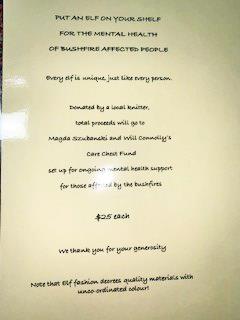 PUT AN ELF ON YOUR SHELF
FOR THE MENTAL HEALTH
OF BUSHFIRE AFFECTED PEOPLE
Every elf is unique, just like every person.
Donated by a local knitter,
total proceeds will go to
Magda Szubanski and Will Connolly's
Care Chest Fund
set up for ongoing mental health support
for those affected by the bushfires
$25 each
We thank you for your generosity
Note that Elf fashion decrees quality materials with
unco-ordinated colour!